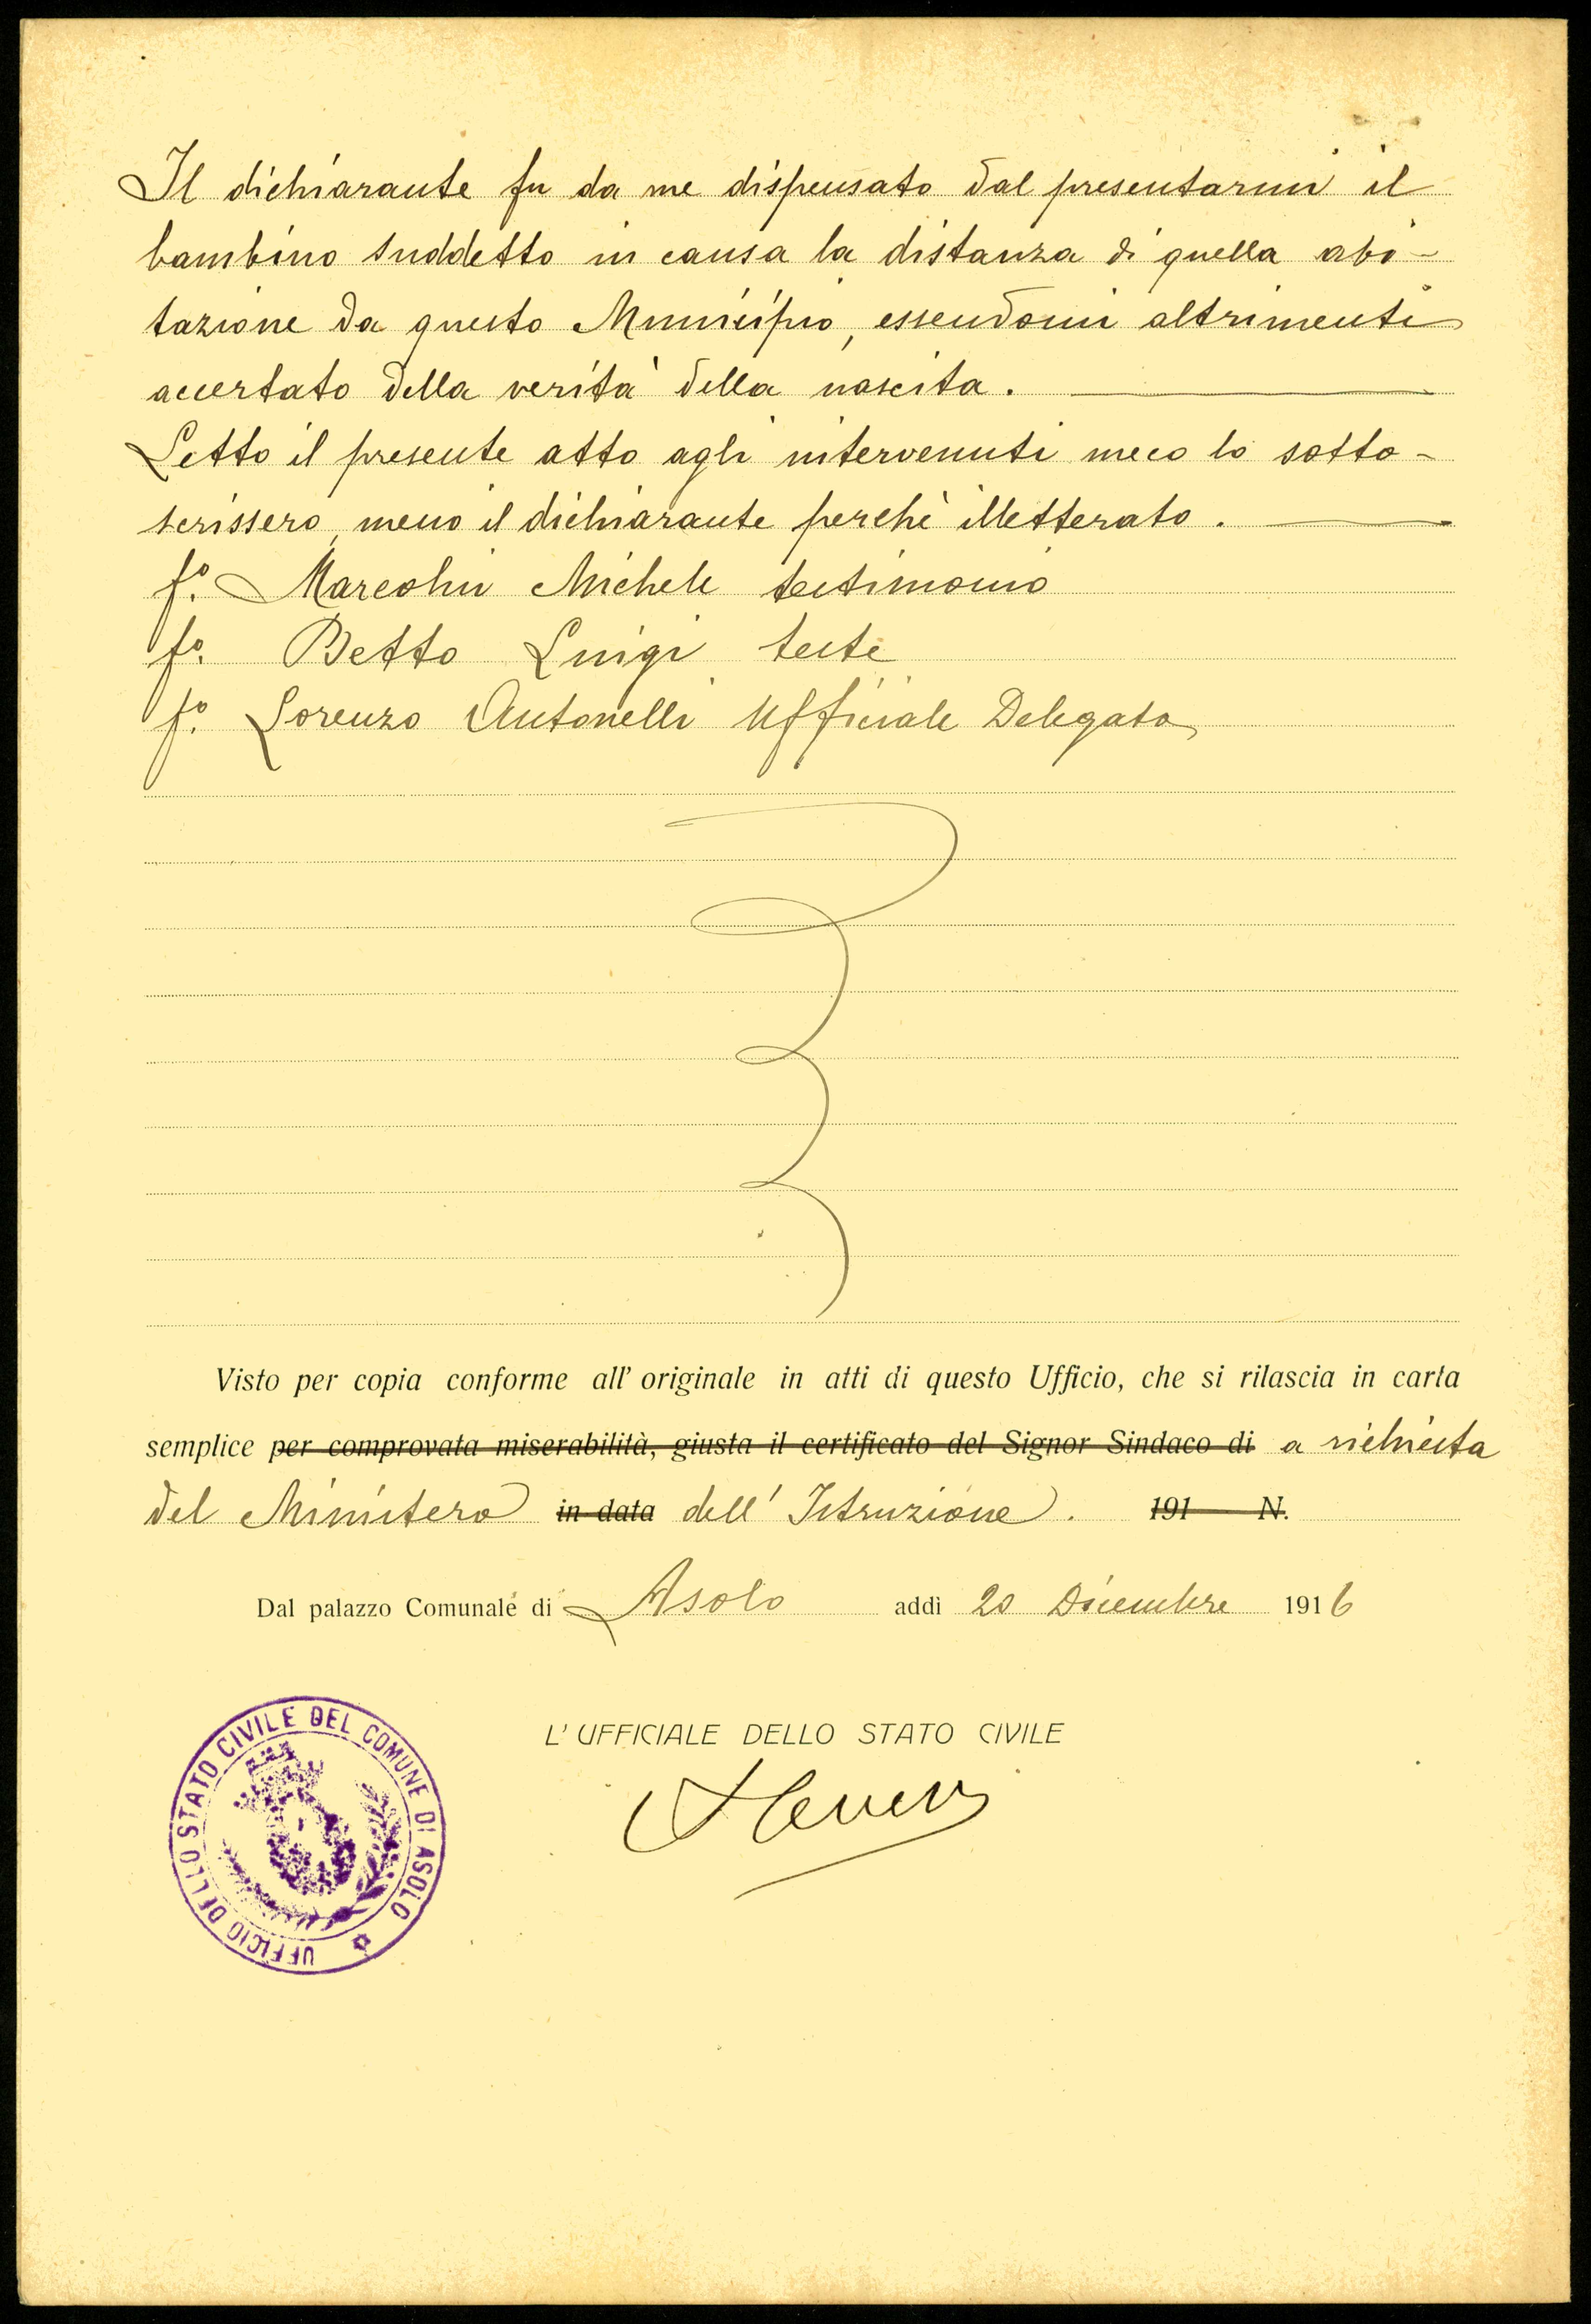 Il dichiarante fu da me dispensato dal presentarmi il
bambino suddetto in causa la distanza di quella abi-
tazione da questo Municipio, essendomi altrimenti
accertato della verità della nascita.
Letto il presente atto agli intervenuti meco lo sotto-
scrissero, meno il dichiarante perchè illetterato.
f.º Marcolin Michele testimonio
fº. Betto Luigi teste
f.º Lorenzo Antonelli Ufficiale Delegato
Visto per copia conforme all' originale in atti di questo Ufficio, che si rilascia in carta
semplice per comprovata miserabilità, giusta il certificato del Signor Sindaco di a richiesta
del Ministero in data dell' Istruzione. 191 N.
Dal palazzo Comunale di Asolo addì 20 Dicembre 1916
L' UFFICIALE DELLO STATO CIVILE
UFFICIO DELLO STATO CIVILE DEL COMUNE DI ASOLO